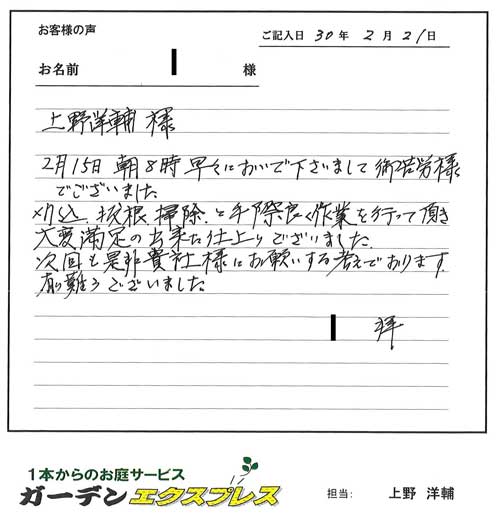 お客様の声
ご記入日 30年 2月 21日
お名前 様
上野洋輔 様
2月15日 朝8時早々においで下さいまして御苦労様
でございました
刈込、抜根、掃除、と手際良く作業を行って頂き
大変満足の出来た仕上りでございました。
次回も是非貴社様にお願いする考えであります。
有難うございました
拝
1本からのお庭サービス
ガーデンエクスプレス
担当: 上野 洋輔